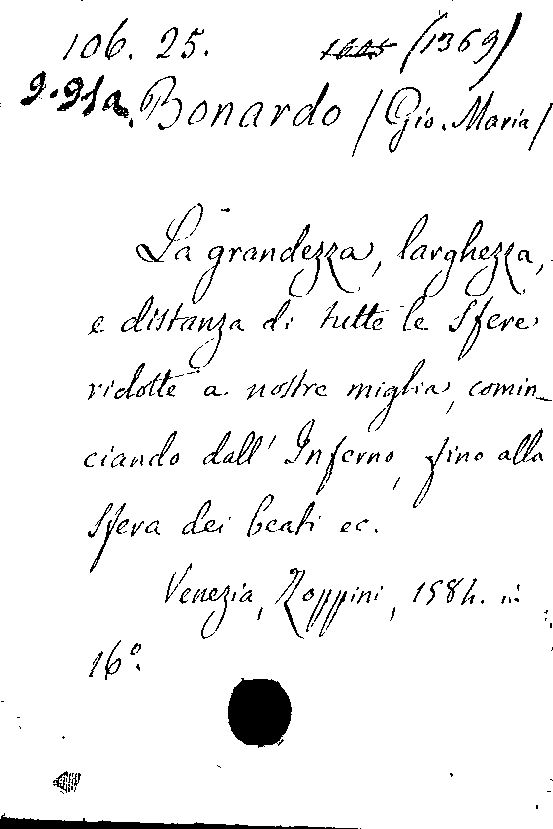 106. 25. 1605 (1369)
9.91a. Bonardo (Gio. Maria)
La grandezza, larghezza,
e distanza di tutte le sfere
ridotte a nostre miglia, comin_
ciando dall' Inferno, fino alla
sfera dei beati ec.
Venezia, Zoppini, 1584. in
16°.